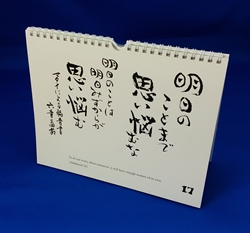 明日の
ことまで
思い悩むな
明日のことは
明日自らが
思い悩む
マタイによる福音書
六章三四節
17